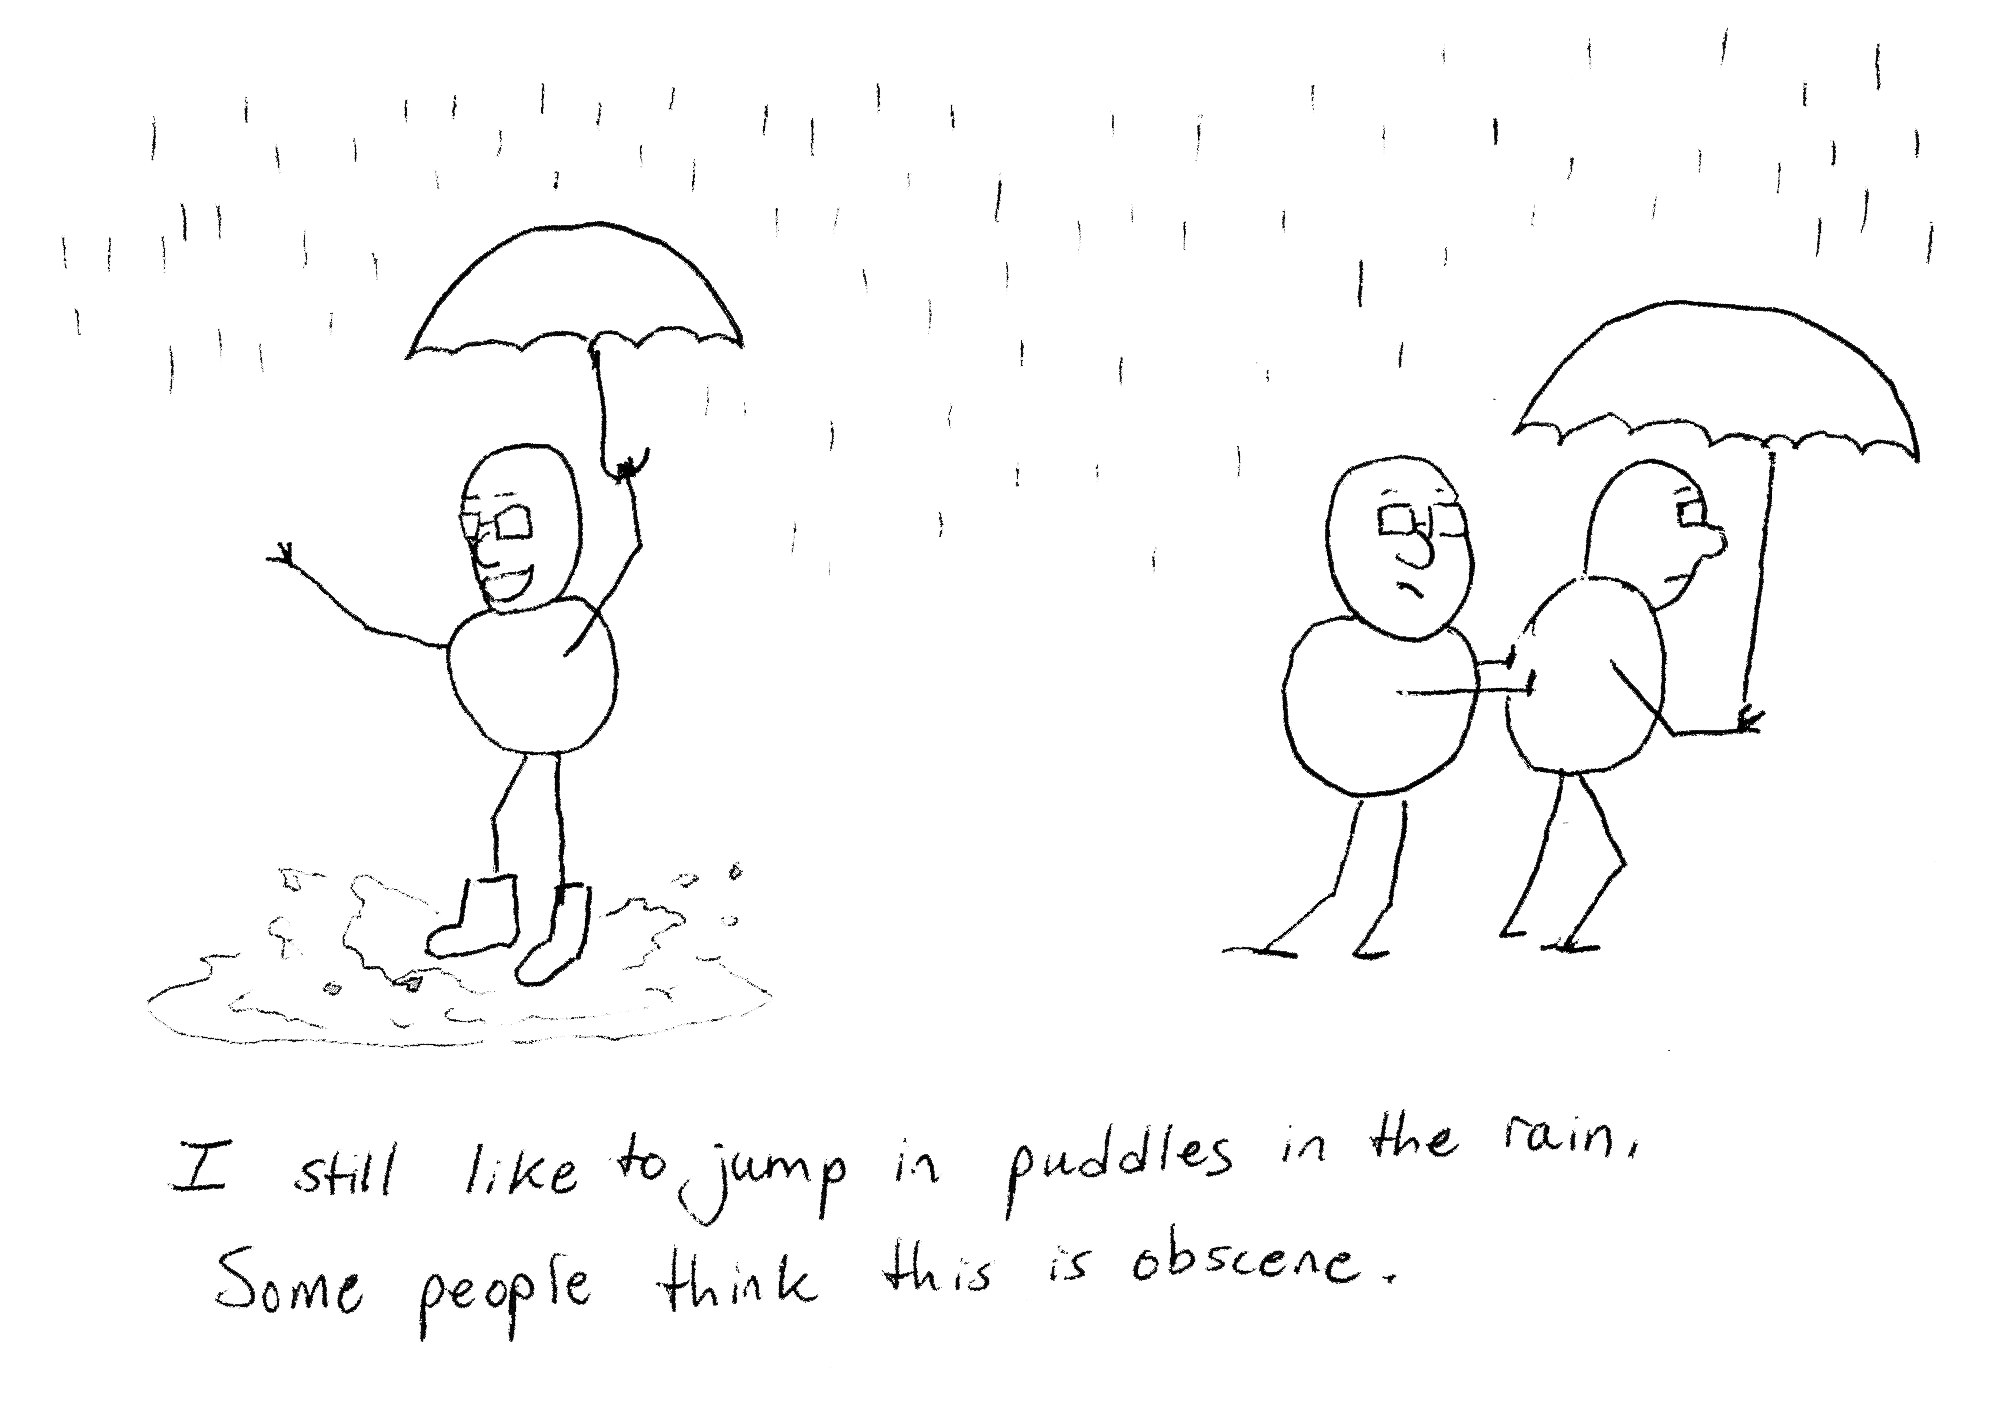 I still like to jump in puddles in the rain.
Some people think this is obscene.